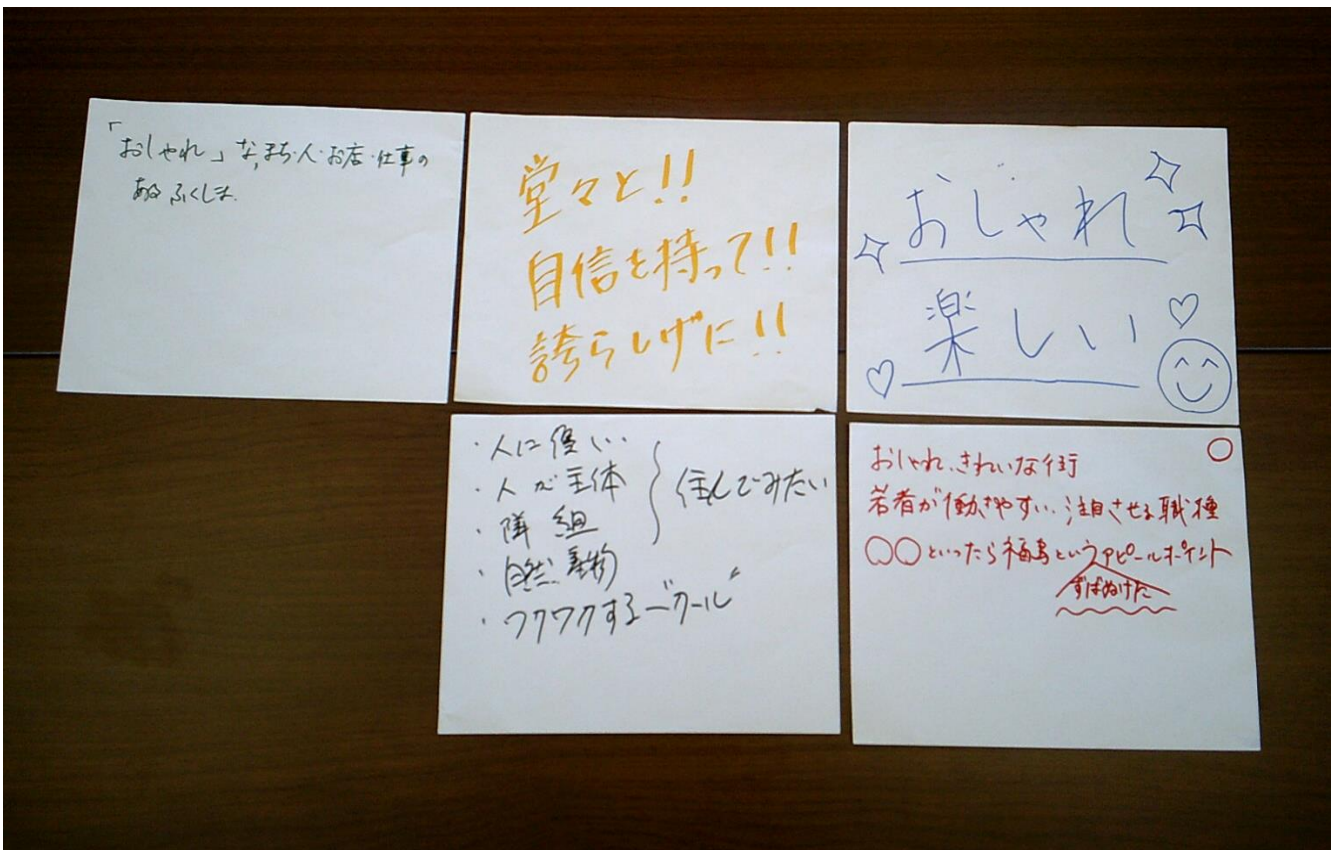 「おしゃれ」な、まち・人・お店・仕事の
あるふくしま
堂々と!!
自信を持って!!
誇らしげに!!
おしゃれ
楽しい
・人に優しい
・人が主体
・隣組
住んでみたい
・自然
・ワクワクする "クール"
おしゃれ、きれいな街
若者が働きやすい、注目させる職種
〇〇といったら福島というアピールポイント
ずばぬけた